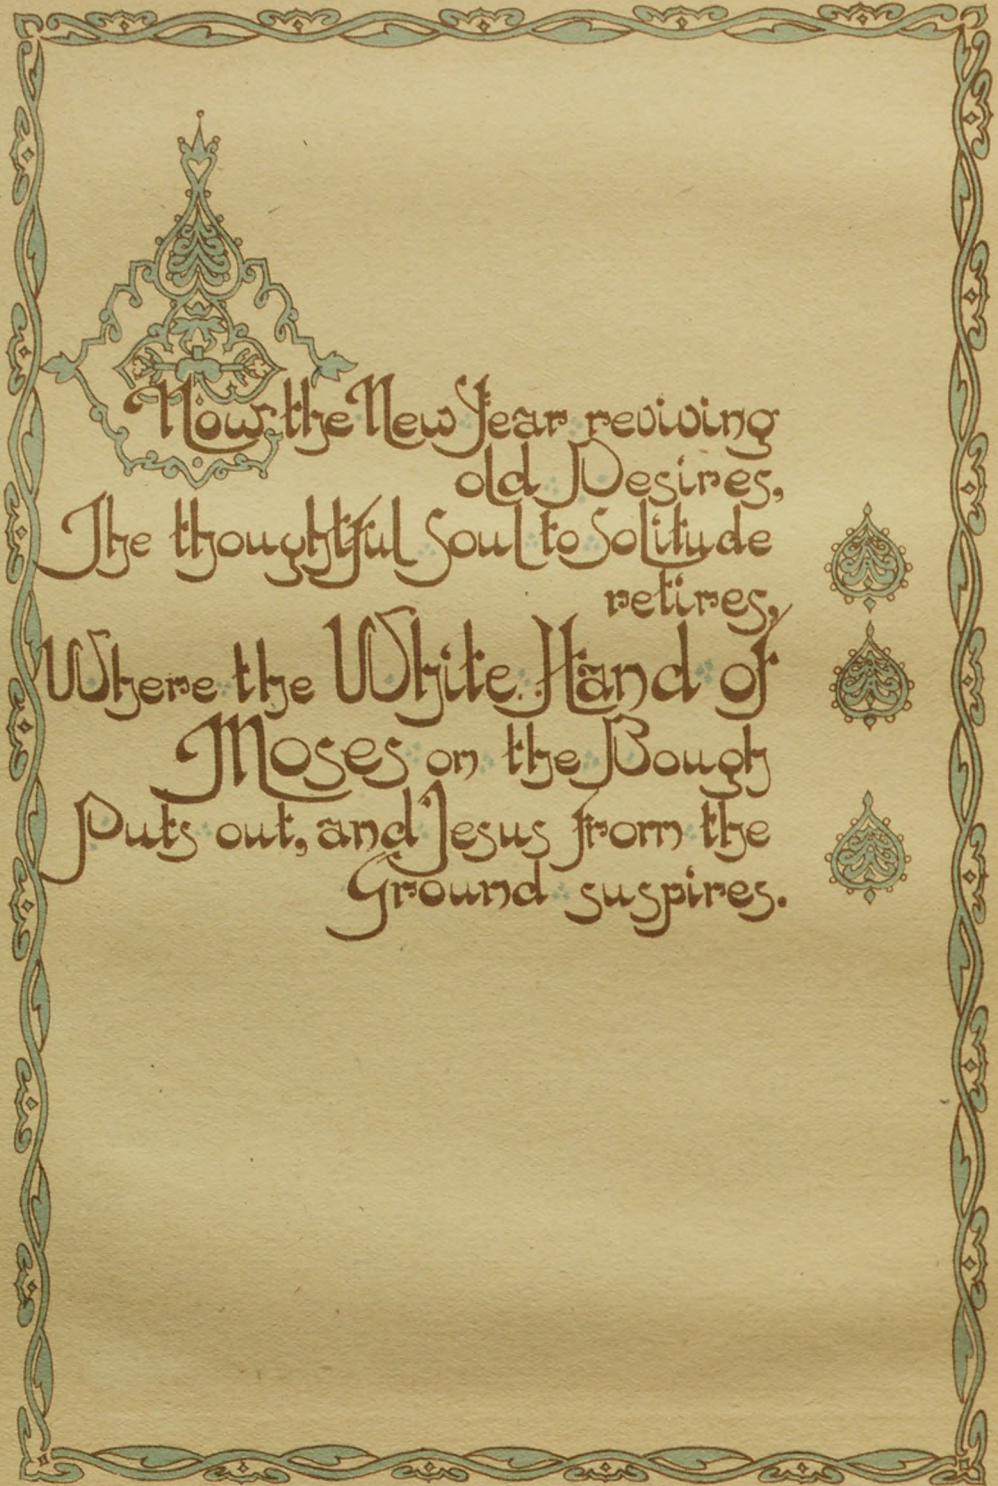 Now the New Year reviving
old Desires,
The thoughtful Soul to Solitude
retires,
Where the White Hand of
Moses on the Bough
Puts out, and Jesus from the
Ground suspires.